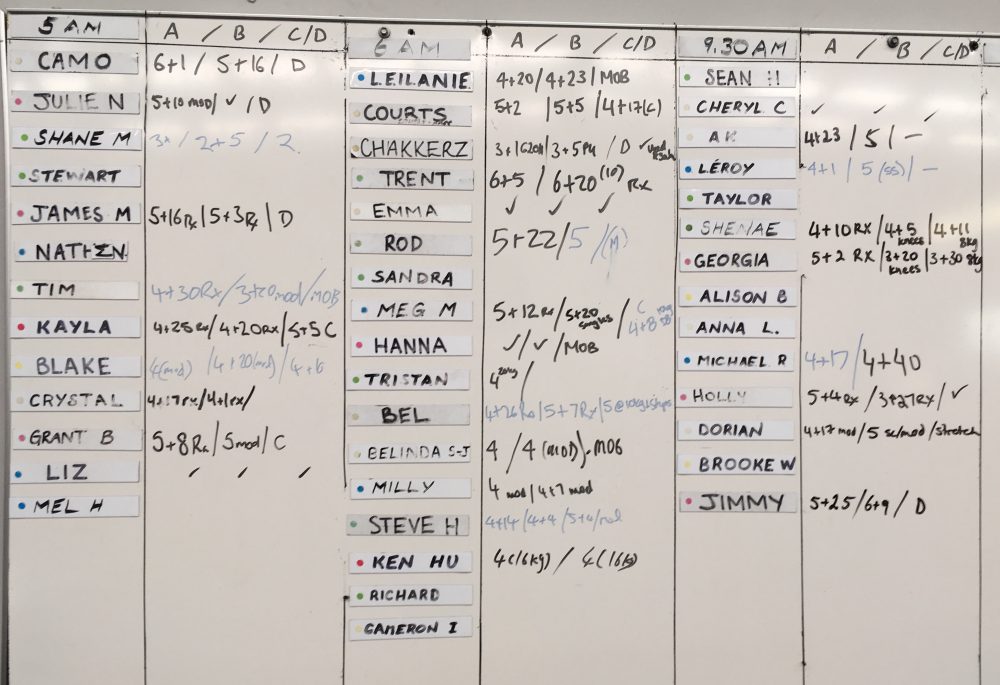 5 AM A / B / C/D
CAMO 6+1 / 5+16 / D
JULIE N 5+10 mod / ✓ / D
SHANE M / 2+5 / 2
STEWART
JAMES M 5+16 Rx / 5+3 Rx / D
NATHEN
TIM 4+30Rx / 3+20mod / MOB
KAYLA 4+25 Rx / 4+20RX / 5+5 C
BLAKE 4(mod) / 4+20(mod) / 4+16
CRYSTAL 4+17rx / 4+1rx /
GRANT B 5+8Rx / 5mod / C
LIZ ✓ ✓ ✓
MEL H
6 AM A / B / C/D
LEILANIE 4+20 / 4+23 / MOB
COURTS 5+2 / 5+5 / 4+17(C)
CHAKKERZ / D ✓
TRENT 6+5 / 6+20 (10) Rx
EMMA ✓ ✓ ✓
ROD 5+22 / 5 / (M)
SANDRA
MEG M 5+12 Rx / 5+20 singles / C 4+8
HANNA ✓ / ✓ / MOB
TRISTAN 4 20kg /
BEL 4+26 Rx / 5+7 Rx / 5@10kg
BELINDA S-J 4 / 4 (MOD) - MOB
MILLY 4 mod / 4+7 mod
STEVE H 4+14 / 4+4 /
KEN HU 4(16kg) / 4(16kg)
RICHARD
CAMERON I
9.30 AM A / B / C/D
SEAN H
CHERYL C ✓ ✓ ✓
4+23 / 5 / —
LEROY 4+1 / 5 (ss) / —
TAYLOR
SHENAE 4+10 RX / 4+5 knees / 4+11 8kg
GEORGIA 5+2 RX / 3+20 knees / 3+30 8kg
ALISON B
ANNA L.
MICHAEL R 4+17 / 4+40
HOLLY 5+4 RX / 3+27RX / ✓
DORIAN 4+17 mod / 5 sc/mod / stretch
BROOKE W
JIMMY 5+25 / 6+9 / D